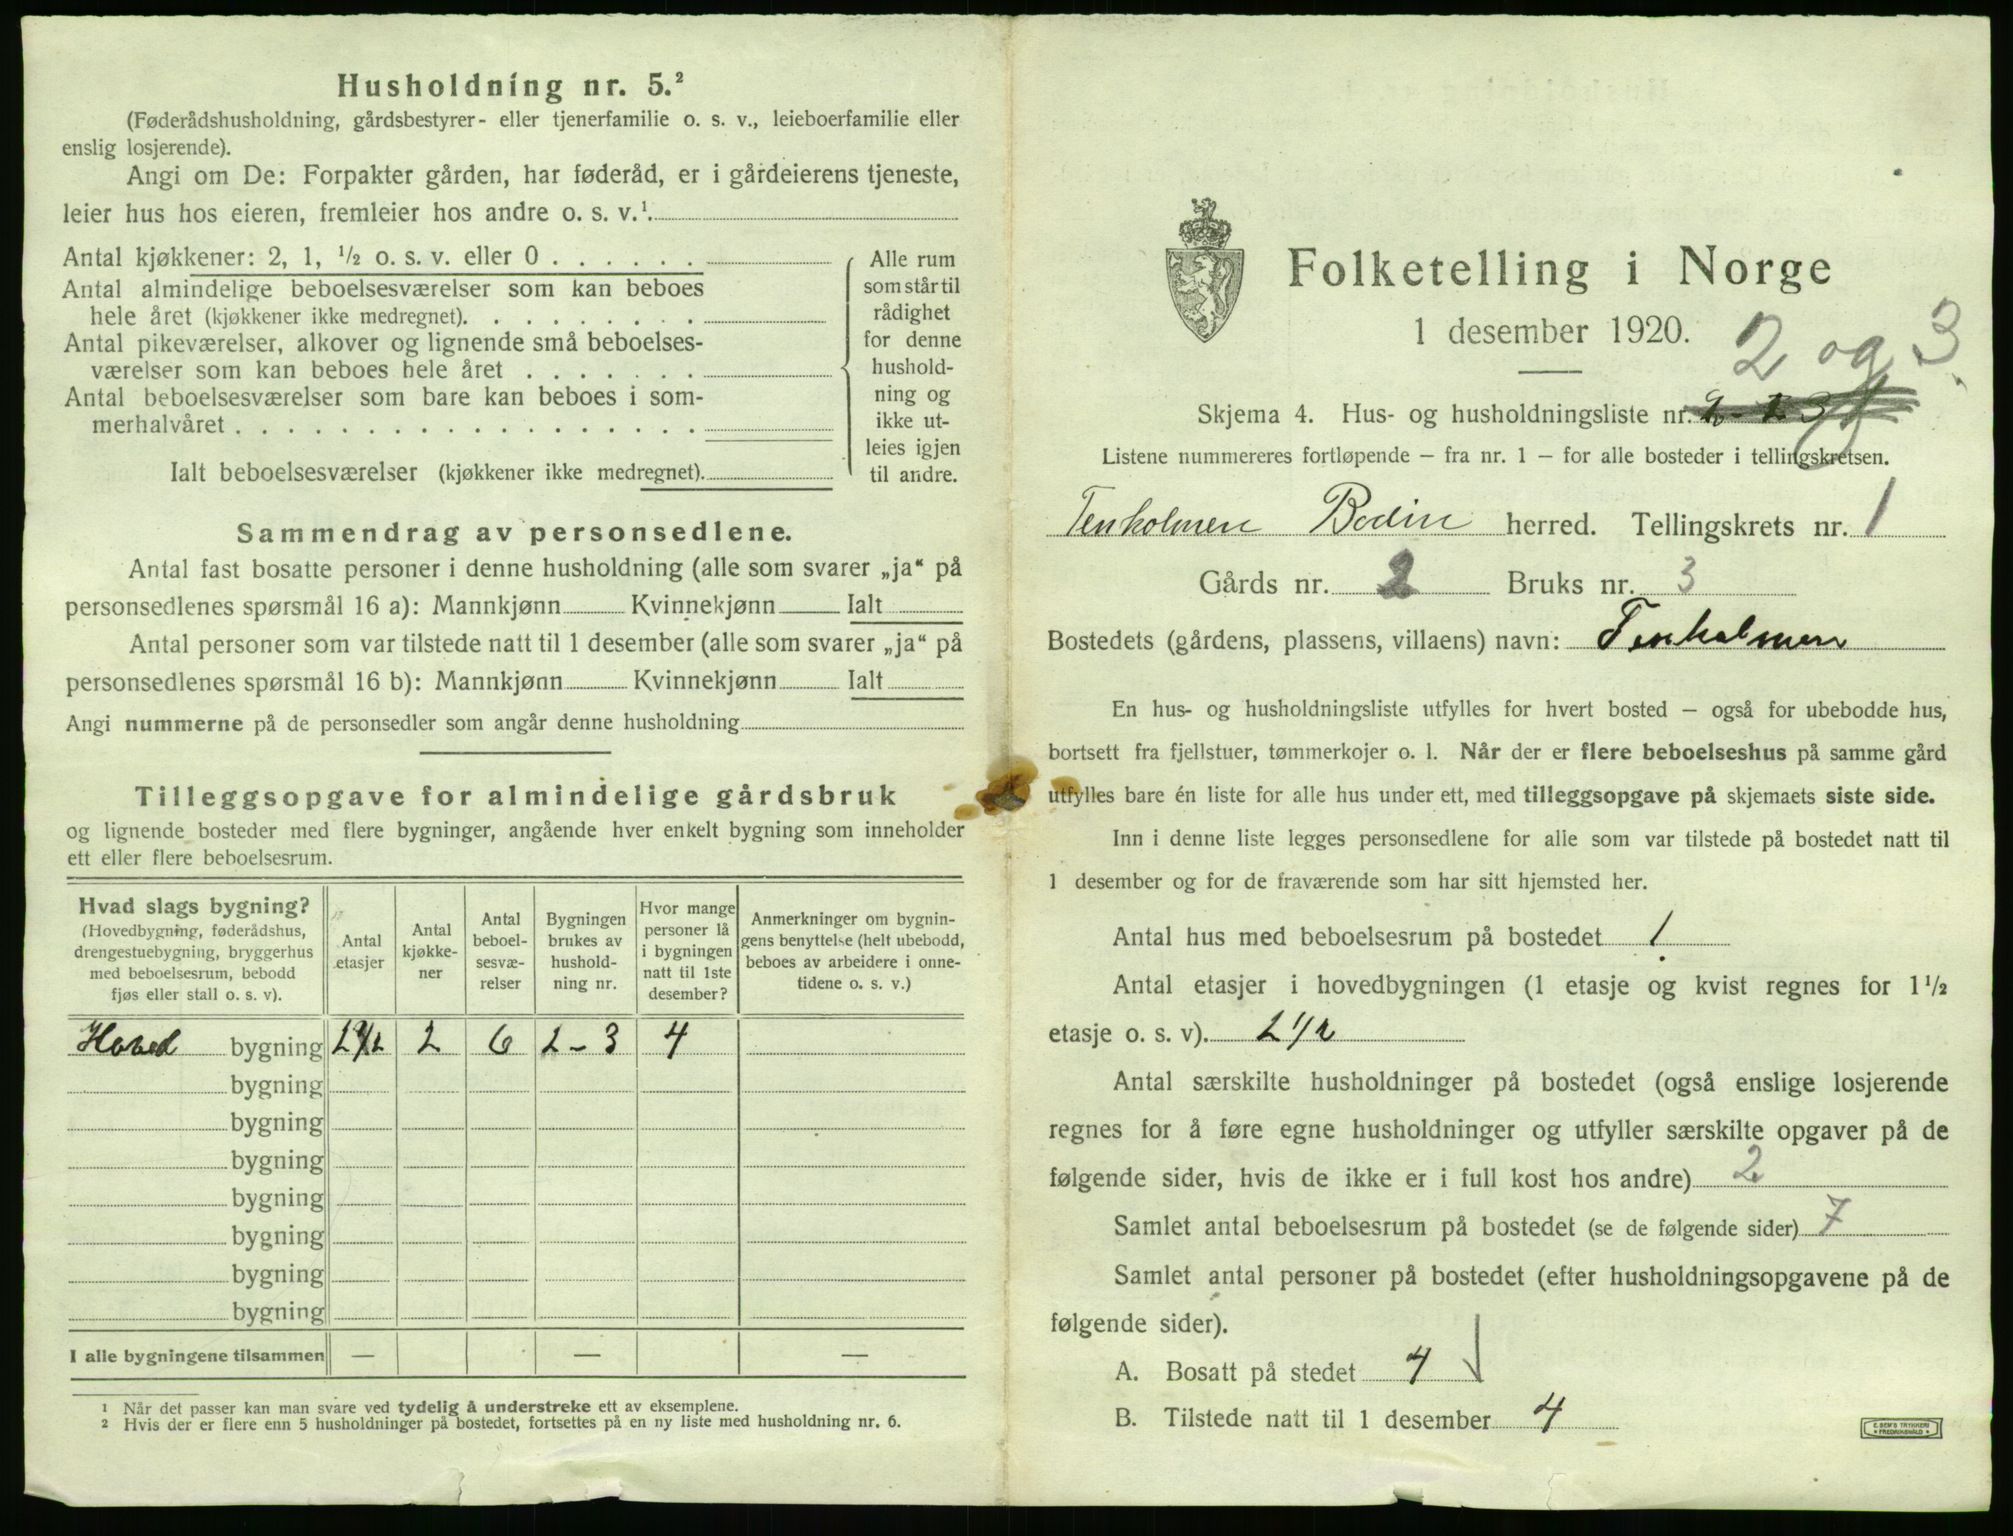 Husholdning nr. 5.²
(Føderådshusholdning, gårdsbestyrer- eller tjenerfamilie o. s. v., leieboerfamilie eller
enslig losjerende).
Angi om De: Forpakter gården, har føderåd, er i gårdeierens tjeneste,
leier hus hos eieren, fremleier hos andre o. s. v.¹.
Antal kjøkkener: 2, 1, ½ o. s. v. eller 0 . . . . . .
Antal almindelige beboelsesværelser som kan beboes
hele året (kjøkkener ikke medregnet). . . . . . . . .
Antal pikeværelser, alkover og lignende små beboelses-
værelser som kan beboes hele året . . . . . . .
Antal beboelsesværelser som bare kan beboes i som-
merhalvåret . . . . . . . . . . . . . . . . . .
Ialt beboelsesværelser (kjøkkener ikke medregnet).
Alle rum
som står til
rådighet
for denne
hushold-
ning og
ikke ut-
leies igjen
til andre.
Sammendrag av personsedlene.
Antal fast bosatte personer i denne husholdning (alle som svarer „ja“ på
personsedlenes spørsmål 16 a): Mannkjønn Kvinnekjønn Ialt
Antal personer som var tilstede natt til 1 desember (alle som svarer „ja“ på
personsedlenes spørsmål 16 b): Mannkjønn Kvinnekjønn Ialt
Angi nummerne på de personsedler som angår denne husholdning
Tilleggsopgave for almindelige gårdsbruk
og lignende bosteder med flere bygninger, angående hver enkelt bygning som inneholder
ett eller flere beboelsesrum.
Hvad slags bygning?
(Hovedbygning, føderådshus,
drengestuebygning, bryggerhus
med beboelsesrum, bebodd
fjøs eller stall o. s. v).
Antal
etasjer
Antal
kjøkke-
ner
Antal
beboel-
sesvæ-
relser
Bygningen
brukes av
hushold-
ning nr.
Hvor mange
personer lå
i bygningen
natt til 1ste
desember?
Anmerkninger om bygnin-
gens benyttelse (helt ubebodd,
beboes av arbeidere i onne-
tidene o. s. v.)
Hoved bygning 2 1/2 2 6 2-3 4
bygning
bygning
bygning
bygning
bygning
bygning
bygning
I alle bygningene tilsammen — — —
1 Når det passer kan man svare ved tydelig å understreke ett av eksemplene.
2 Hvis der er flere enn 5 husholdninger på bostedet, fortsettes på en ny liste med husholdning nr. 6.
Folketelling i Norge
1 desember 1920.
2 og 3
Skjema 4. Hus- og husholdningsliste nr.
Listene nummereres fortløpende – fra nr. 1 – for alle bosteder i tellingskretsen.
Tenholmen Bodin herred. Tellingskrets nr. 1
Gårds nr. 2 Bruks nr. 3
Bostedets (gårdens, plassens, villaens) navn: Tenholmen
En hus- og husholdningsliste utfylles for hvert bosted – også for ubebodde hus,
bortsett fra fjellstuer, tømmerkojer o. l. Når der er flere beboelseshus på samme gård
utfylles bare én liste for alle hus under ett, med tilleggsopgave på skjemaets siste side.
Inn i denne liste legges personsedlene for alle som var tilstede på bostedet natt til
1 desember og for de fraværende som har sitt hjemsted her.
Antal hus med beboelsesrum på bostedet 1
Antal etasjer i hovedbygningen (1 etasje og kvist regnes for 1½
etasje o. s. v). 2 1/2
Antal særskilte husholdninger på bostedet (også enslige losjerende
regnes for å føre egne husholdninger og utfyller særskilte opgaver på de
følgende sider, hvis de ikke er i full kost hos andre) 2
Samlet antal beboelsesrum på bostedet (se de følgende sider) 7
Samlet antal personer på bostedet (efter husholdningsopgavene på de
følgende sider).
A. Bosatt på stedet 4
B. Tilstede natt til 1 desember 4
E. SEM'S TRYKKERI
FREDRIKSHALD